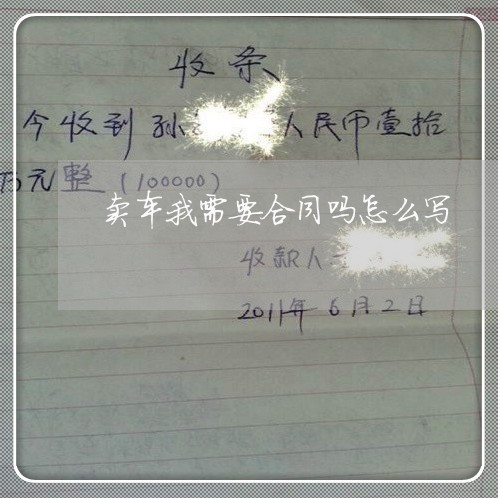 收条
今收到孙 人民币壹拾
万元整(100000)
卖车我需要合同吗怎么写
收款人
2011年6月2日